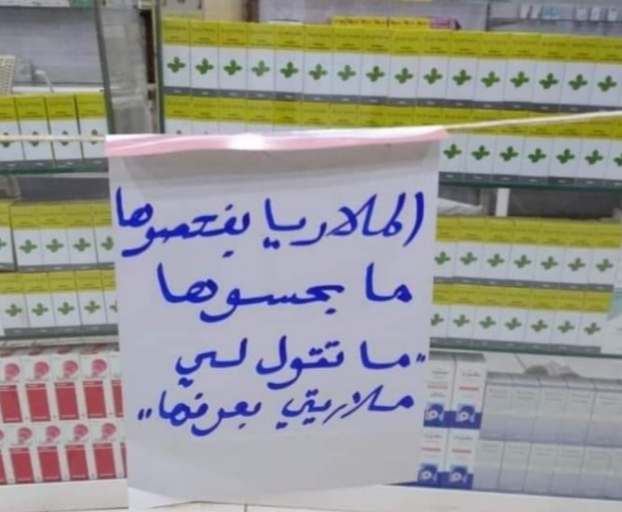 الملاريا بفتصوها
ما بحسوها
"ما تقول لي
ملاريتي بعرفها"